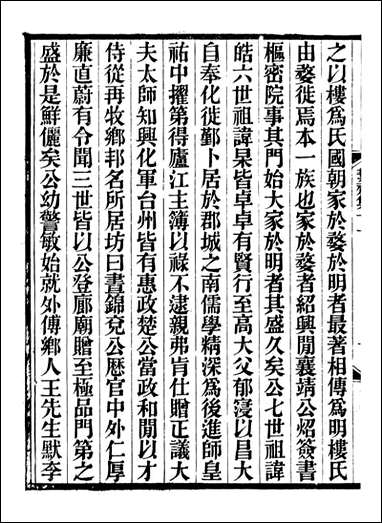 之以樓爲氏國朝家於婺於明者最著相傳爲明樓氏
由婺徙焉本一族也家於婺者紹興閒襄靖公炤簽書
樞密院事其門始大家於明者其盛久矣公七世祖諱
皓六世祖諱杲皆卓卓有賢行至高大父郁寖以昌大
自奉化徙鄞卜居於郡城之南儒學精深爲後進師皇
祐中擢第得廬江主簿以祿不逮親弗肯仕贈正議大
夫太師知興化軍台州皆有惠政楚公當政和閒以才
侍從再牧鄉邦名所居坊曰晝錦兗公歷官中外仁厚
廉直蔚有令聞三世皆以公登廊廟贈至極品門第之
盛於是鮮儷矣公幼警敏始就外傅鄉人王先生默李